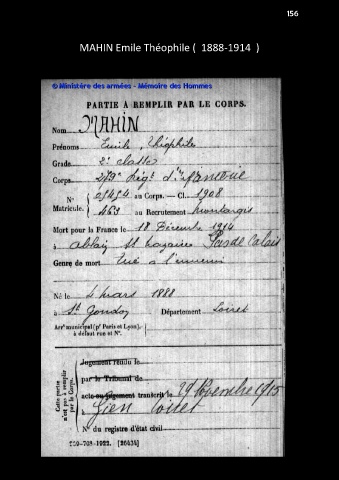 156
MAHIN Emile Théophile ( 1888-1914 )
© Ministère des armées - Mémoire des Hommes
PARTIE A REMPLIR PAR LE CORPS.
Nom MAHIN
Prénoms Emile, Théophile
Grade 2e classe
Corps Régt d'Infanterie
N° Matricule. au Corps. — Cl. 1908
463 au Recrutement Montargis
Mort pour la France le 18 Décembre 1914
à Ablain St Nazaire Pas de Calais
Genre de mort Tué à l'ennemi
Né le 4 mars 1888
à St Gondon Département Loiret
Arrt municipal (pr Paris et Lyon), à défaut rue et N°.
Cette partie n'est pas à remplir par le Corps.
Jugement rendu le
par le Tribunal de
acte ou jugement transcrit le 29 Novembre 1915
à Gien Loiret
N° du registre d'état civil